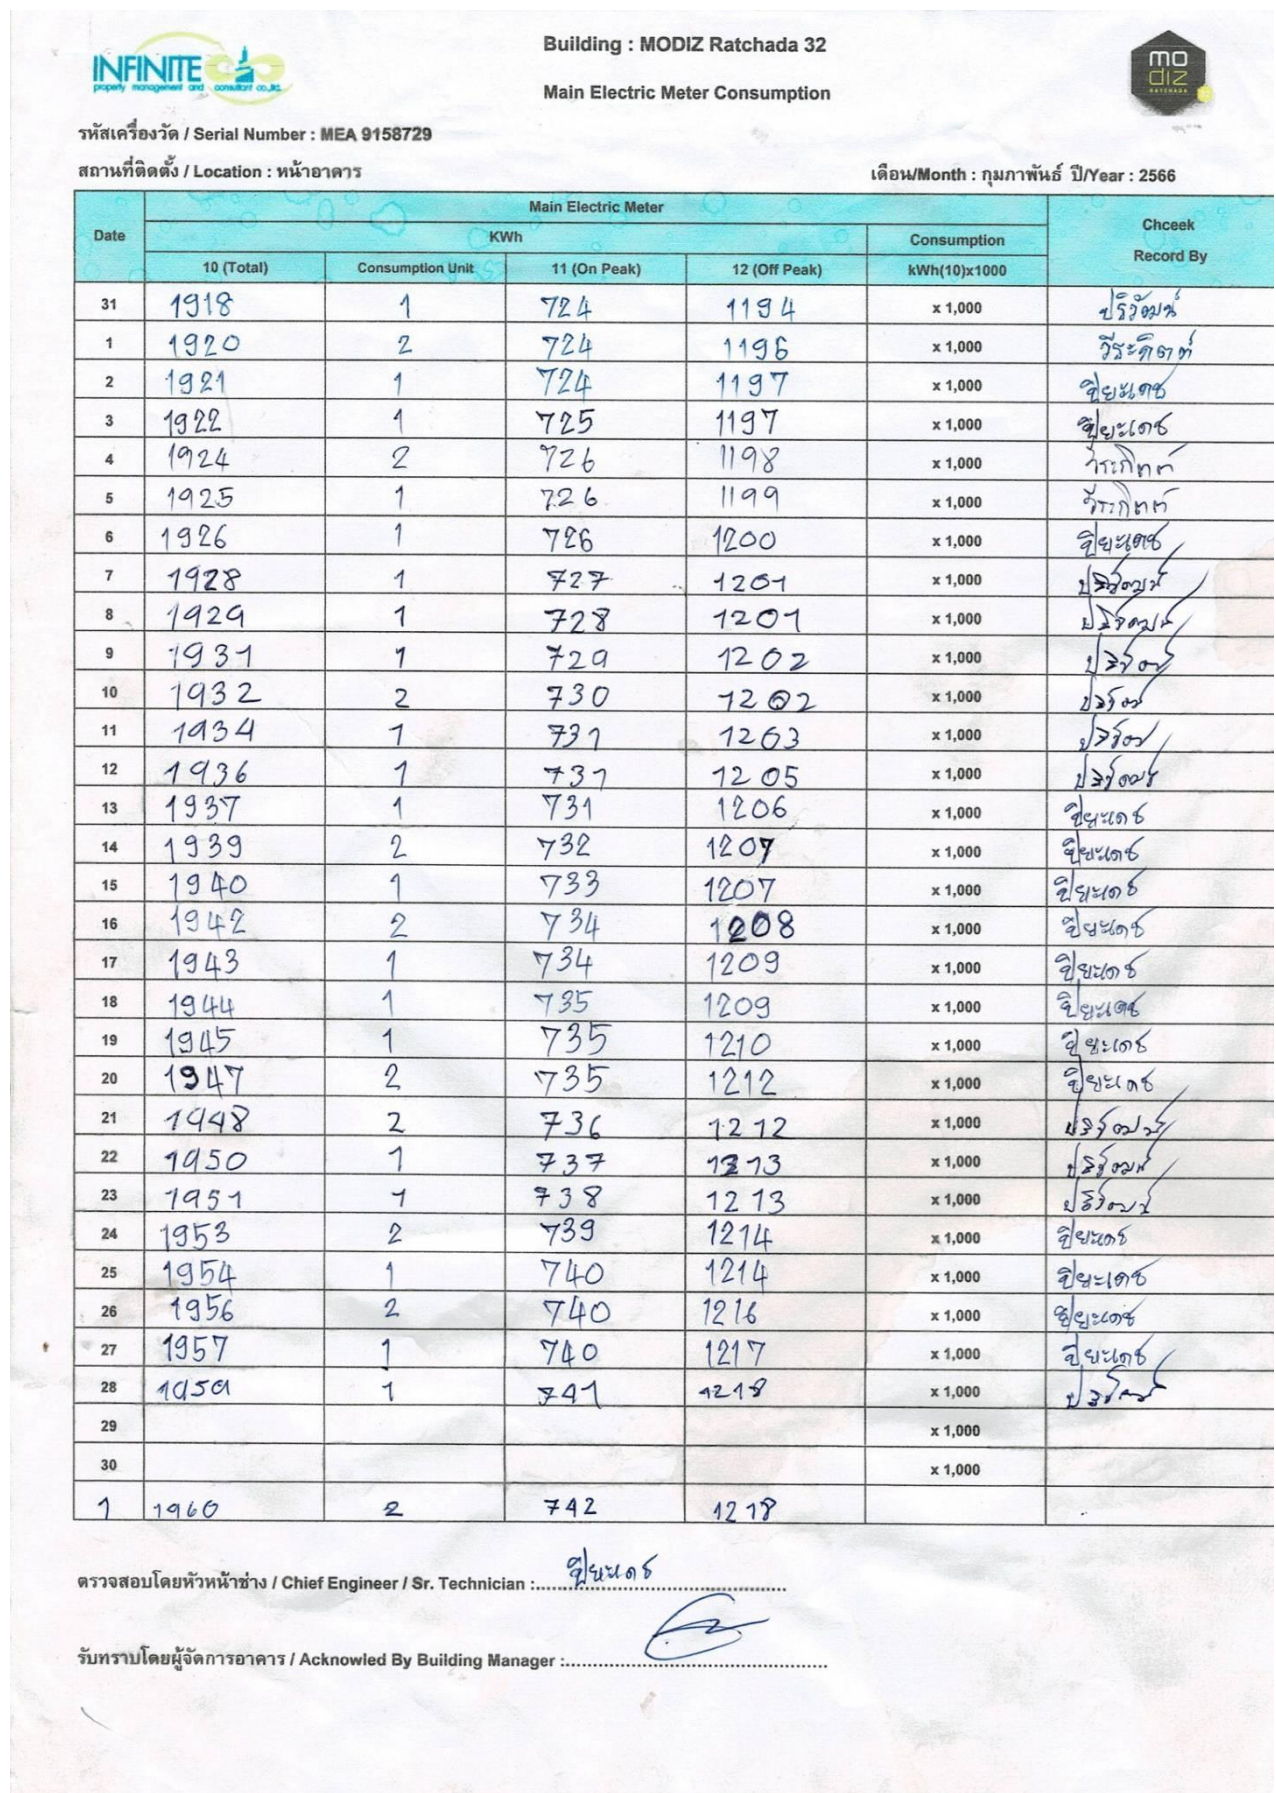 INFINITE
property management and consultant co.,ltd.
Building : MODIZ Ratchada 32
mo
diz
RATCHADA
Main Electric Meter Consumption
รหัสเครื่องวัด / Serial Number : MEA 9158729
สถานที่ติดตั้ง / Location : หน้าอาคาร
เดือน/Month : กุมภาพันธ์ ปี/Year : 2566
Date Main Electric Meter Chceek Record By
KWh Consumption
10 (Total) Consumption Unit 11 (On Peak) 12 (Off Peak) kWh(10)x1000
31 1918 1 724 1194 x 1,000 ปริวัฒน์
1 1920 2 724 1196 x 1,000 วีระกิตต์
2 1921 1 724 1197 x 1,000 ปิยะเดช
3 1922 1 725 1197 x 1,000 ปิยะเดช
4 1924 2 726 1198 x 1,000 วีระกิตต์
5 1925 1 726 1199 x 1,000 วีระกิตต์
6 1926 1 726 1200 x 1,000 ปิยะเดช
7 1928 1 727 1201 x 1,000 ปริวัฒน์
8 1929 1 728 1201 x 1,000 ปริวัฒน์
9 1931 1 729 1202 x 1,000
10 1932 2 730 1202 x 1,000
11 1934 1 731 1203 x 1,000
12 1936 1 731 1205 x 1,000 ปริวัฒน์
13 1937 1 731 1206 x 1,000 ปิยะเดช
14 1939 2 732 1207 x 1,000 ปิยะเดช
15 1940 1 733 1207 x 1,000 ปิยะเดช
16 1942 2 734 1208 x 1,000 ปิยะเดช
17 1943 1 734 1209 x 1,000 ปิยะเดช
18 1944 1 735 1209 x 1,000 ปิยะเดช
19 1945 1 735 1210 x 1,000 ปิยะเดช
20 1947 2 735 1212 x 1,000 ปิยะเดช
21 1948 2 736 1212 x 1,000 ปริวัฒน์
22 1950 1 737 1213 x 1,000 ปริวัฒน์
23 1951 1 738 1213 x 1,000 ปริวัฒน์
24 1953 2 739 1214 x 1,000 ปิยะเดช
25 1954 1 740 1214 x 1,000 ปิยะเดช
26 1956 2 740 1216 x 1,000 ปิยะเดช
27 1957 1 740 1217 x 1,000 ปิยะเดช
28 1959 1 741 1218 x 1,000
29 x 1,000
30 x 1,000
1 1960 2 742 1218
ตรวจสอบโดยหัวหน้าช่าง / Chief Engineer / Sr. Technician :..... ปิยะเดช
รับทราบโดยผู้จัดการอาคาร / Acknowled By Building Manager :.....